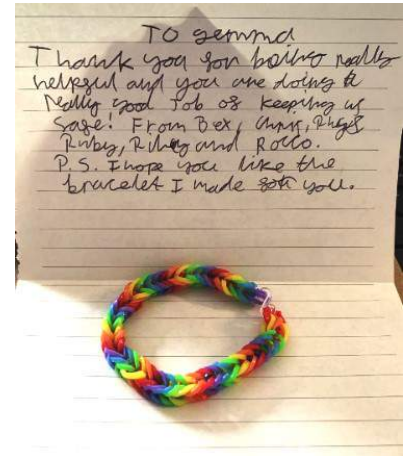 TO gemma
Thank you for being really
helpful and you are doing a
really good Job of keeping us
safe! From Bex, Chris, Rhys,
Ruby, Riley and Rocco.
P.S. I hope you like the
bracelet I made for you.